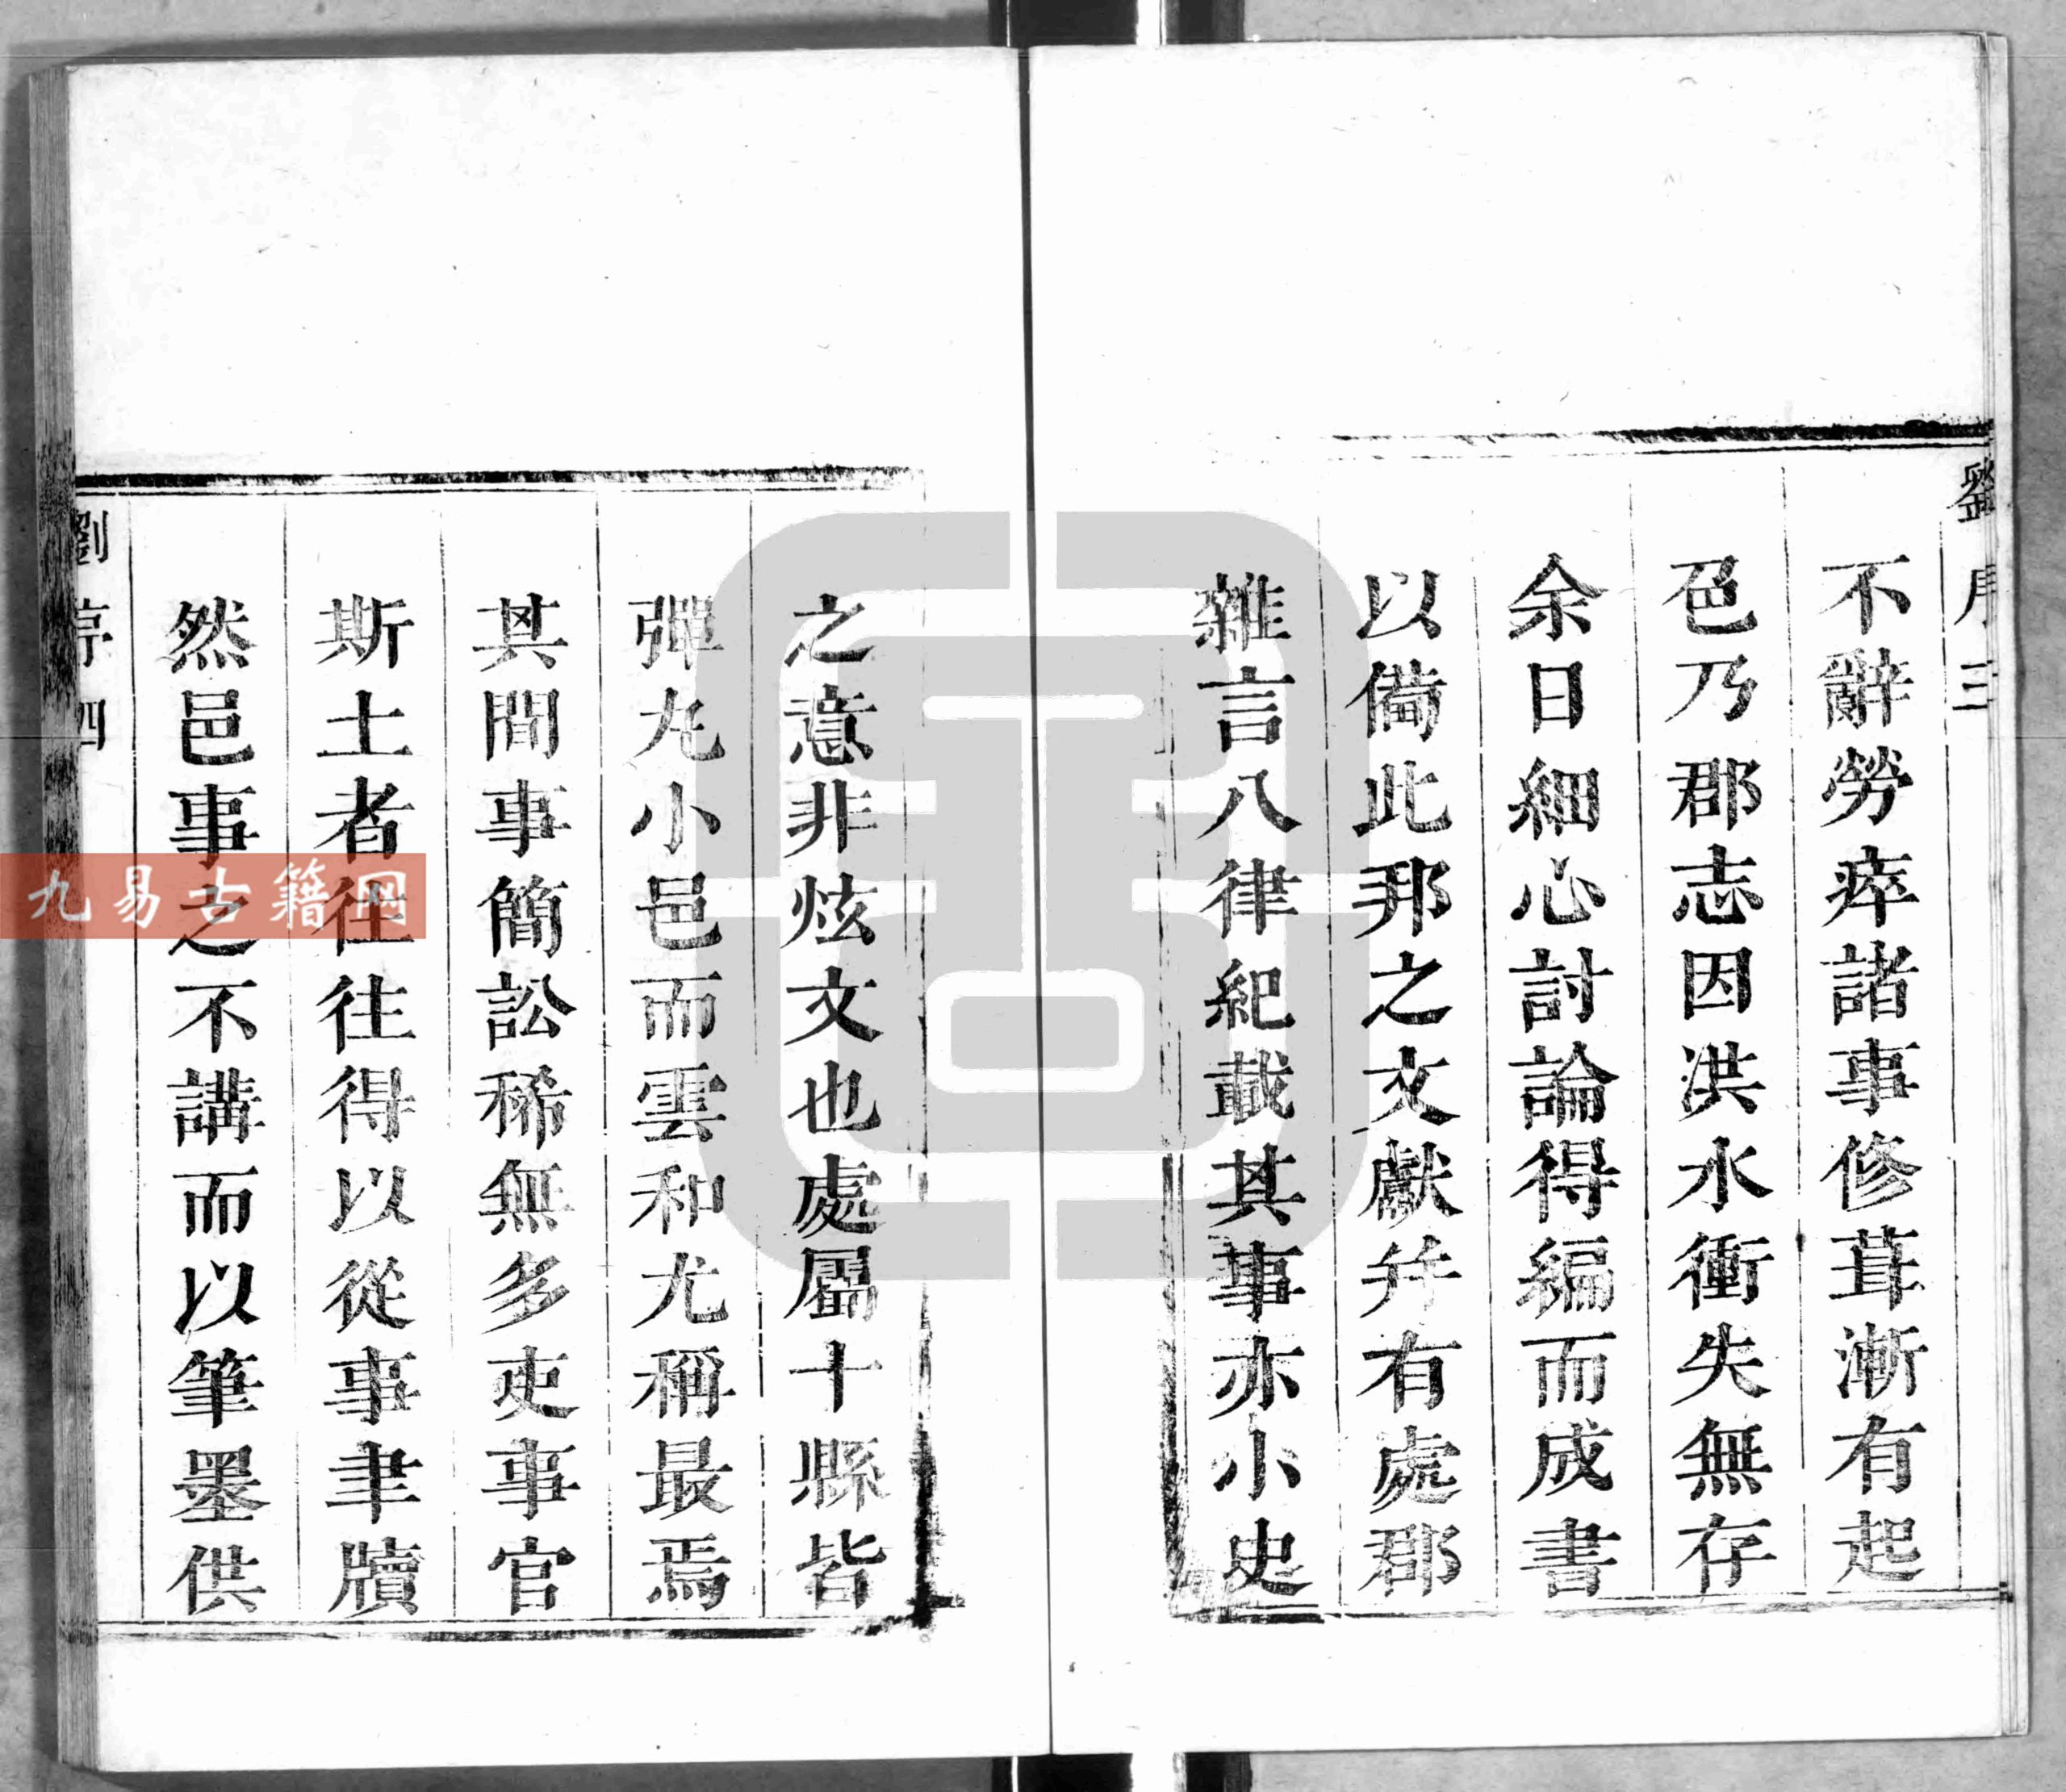 劉序三
不辭勞瘁諸事修葺漸有起
邑乃郡志因洪水衝失無存
余日細心討論得編而成書
以備此邦之文獻并有處郡
雜言八律紀載其事亦小史
之意非炫文也處屬十縣皆
彈丸小邑而雲和尤稱最焉
其間事簡訟稀無多吏事官
斯土者往往得以從事聿牘
然邑事之不講而以筆墨供
劉序四
九易古籍网